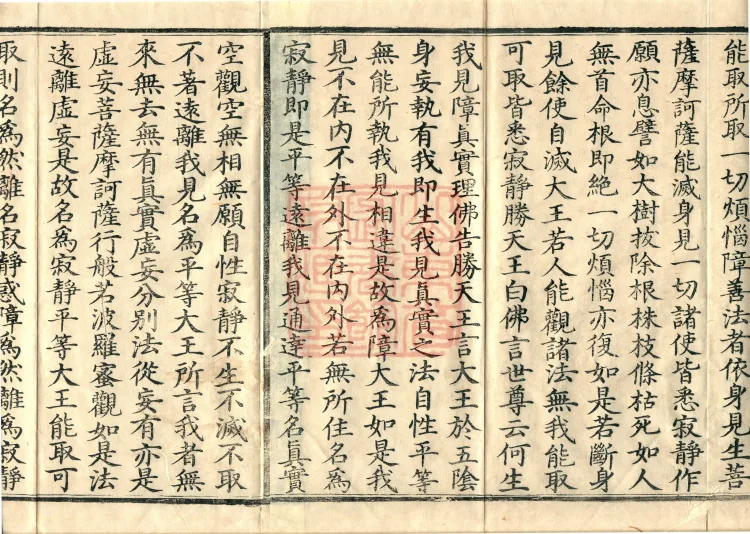 能取所取一切煩惱障善法者依身見生菩
薩摩訶薩能滅身見一切諸使皆悉寂靜作
願亦息譬如大樹拔除根株枝條枯死如人
無首命根即絶一切煩惱亦復如是若斷身
見餘使自滅大王若人能觀諸法無我能取
可取皆悉寂靜勝天王白佛言世尊云何生
我見障眞實理佛告勝天王言大王於五陰
身妄執有我即生我見眞實之法自性平等
無能所執我見相違是故爲障大王如是我
見不在內不在外不在內外若無所住名爲
寂靜即是平等遠離我見通達平等名眞實
空觀空無相無願自性寂靜不生不滅不取
不著遠離我見名爲平等大王所言我者無
來無去無有眞實虛妄分別法從妄有亦是
虛妄菩薩摩訶薩行般若波羅蜜觀如是法
遠離虛妄是故名爲寂靜平等大王能取可
取則名爲然離名寂靜惑障爲然離爲寂靜